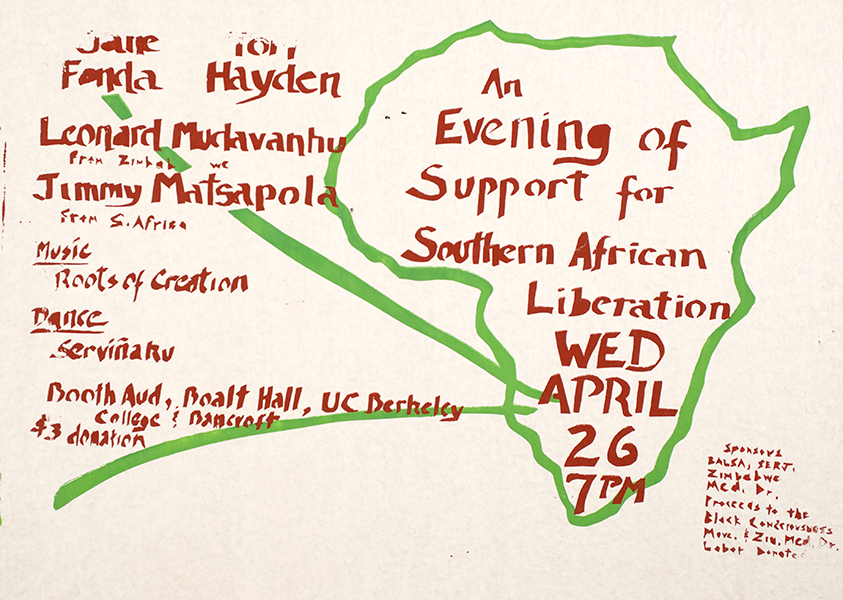 Jane Tom
Fonda Hayden
Leonard Mudavanhu
from Zimbabwe
Jimmy Matsapola
from S. Africa
Music
Roots of Creation
Dance
Serviñaku
Booth Aud., Boalt Hall, UC Berkeley
College & Bancroft
$3 donation
An
Evening of
Support for
Southern African
Liberation
WED
APRIL
26
7PM
Sponsors
BALSA, SERJ,
Zimbabwe
Med. Dr.
Proceeds to the
Black Consciousness
Move. & Zim. Med. Dr.
Labor Donated